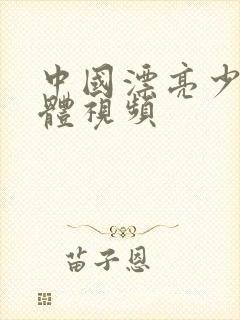 中國漂亮少
體視頻
苗子恩